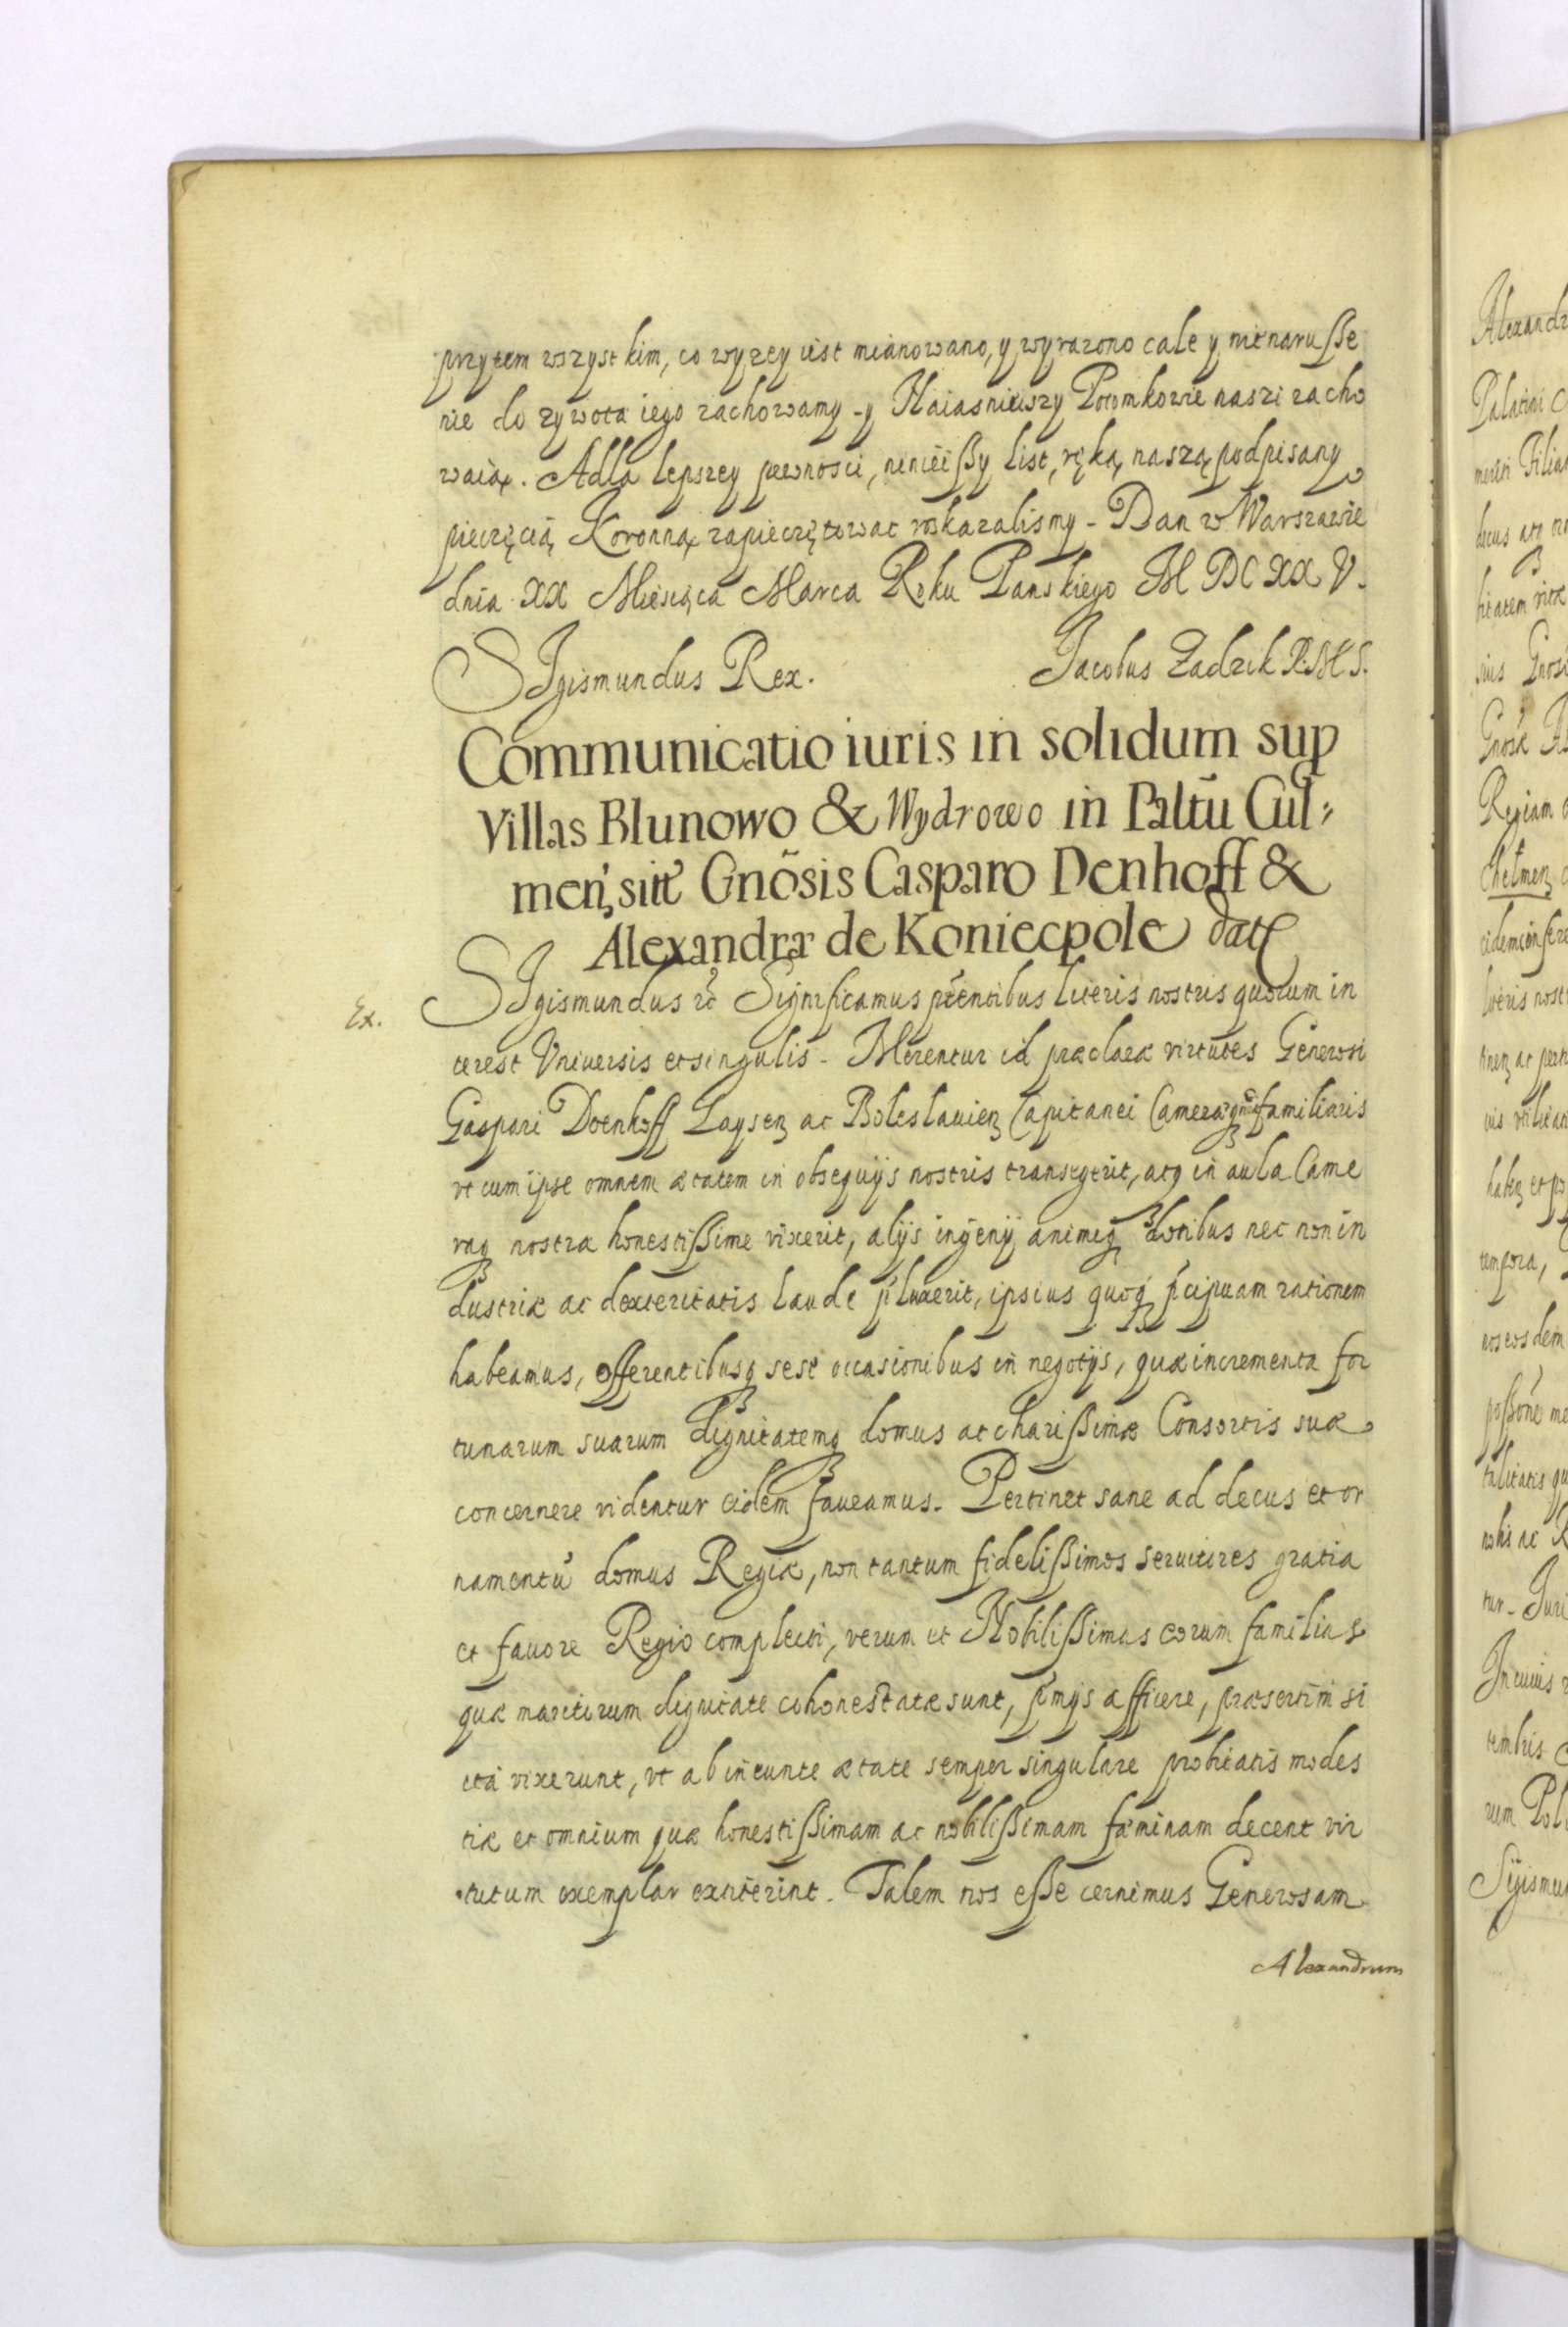 przytem wszystkim, co wyzey iest mianowano, y wyrazono cale y nienaruſſe
nie do zywota iego zachowamy - y Naiasnieiszy Potomkowie naszi zacho
waią. Adla lepszey pewnosci, ninieiſſy list, ręką naszą podpisany
pieczęcią Koronną zapieczętowac roskazalismy - Dan w Warszawie
dnia XX Miesiąca Marca Roku Panskiego M DC XX V.
SIgismundus Rex. Jacobus Zadzik R: M S.
Communicatio iuris in solidum sup
Villas Blunowo & Wydrowo in Paltũ Cul-
meñ, sitt Gnõsis Casparo Denhoff &
Alexandræ de Koniecpole dat
Ex. SIgismundus etc Significamus pñtentibus literis nostris quorum in
terest Vniuersis et singulis - Merentur id præclaræ virtutes Generosi
Gaspari Doenhoff Laysen ac Boleslauien Capitanei Cameraq nrã familiaris
vt cum ipse omnem ætatem in obsequijs nostris transegerit, atq in aula Came
raq nostra honestiſſime vixerit, alijs ingenij animiq dotibus nec non in
dustriæ ac dexteritatis laude p'luxerit, ipsius quoq p'cipuam rationem
habeamus, offerentibusq sese occasionibus in negotijs, quæ incrementa for
tunarum suarum dignitatemq domus ac chariſſimæ Consortis suæ
concernere videntur eidem faueamus. Pertinet sane ad decus et or
namentũ domus Regiæ, non tantum fideliſſimos seruitores gratia
et fauore Regio complecti, verum et Nobiliſſimas eorum familias
quæ maritorum dignitate cohonestatæ sunt, p'mijs afficere, præsertim si
ita vixerunt, vt ab ineunte ætate semper singulare probitatis modes
tiæ et omnium quæ honestiſſimam ac nobiliſſimam fæminam decent vir
tutum exemplar extiterint. Talem nos eſſe cernimus Generosam
Alexandram